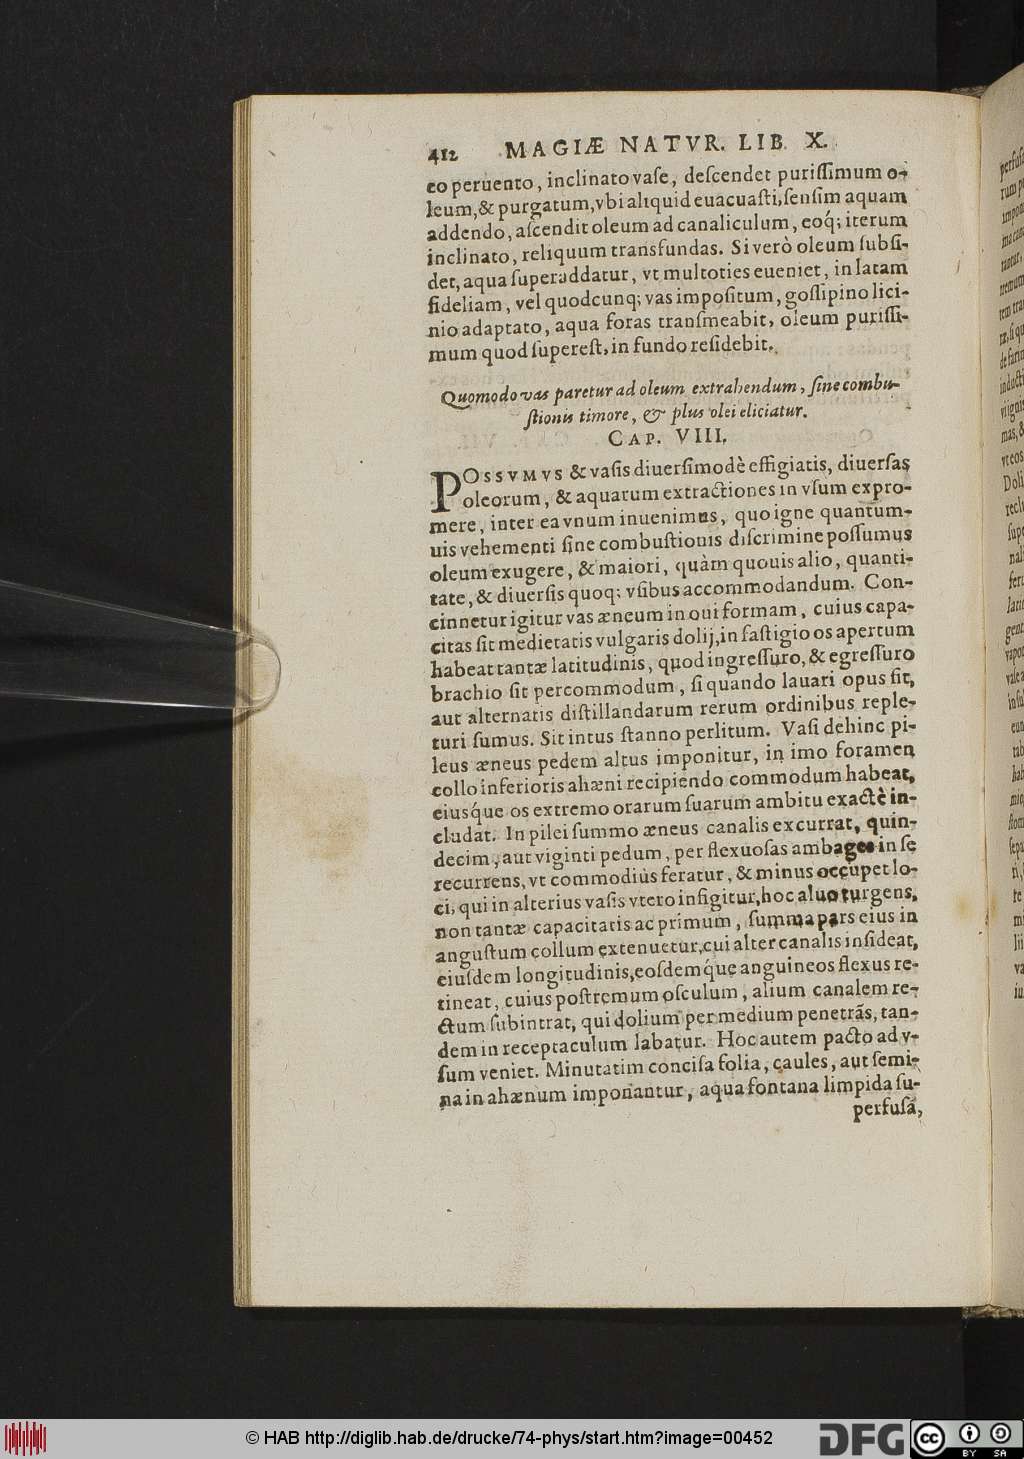 412 MAGIÆ NATVR. LIB. X.
eo peruento, inclinato vaſe, deſcendet puriſſimum o-
leum, & purgatum, vbi aliquid euacuaſti, ſenſim aquam
addendo, aſcendit oleum ad canaliculum, eoq́; iterum
inclinato, reliquum transfundas. Si verò oleum ſubſi-
det, aqua ſuperaddatur, vt multoties eueniet, in latam
fideliam, vel quodcunq; vas impoſitum, goſſipino lici-
nio adaptato, aqua foras tranſmeabit, oleum puriſſi-
mum quod ſupereſt, in fundo reſidebit.
Quomodo vas paretur ad oleum extrahendum, ſine combu-
ſtionis timore, & plus olei eliciatur.
CAP. VIII.
POSSVMVS & vaſis diuerſimodè effigiatis, diuerſas
oleorum, & aquarum extractiones in vſum expro-
mere, inter ea vnum inuenimus, quo igne quantum-
uis vehementi ſine combuſtionis diſcrimine poſſumus
oleum exugere, & maiori, quàm quouis alio, quanti-
tate, & diuerſis quoq; vſibus accommodandum. Con-
cinnetur igitur vas æneum in oui formam, cuius capa-
citas ſit medietatis vulgaris dolij, in faſtigio os apertum
habeat tantæ latitudinis, quod ingreſſuro, & egreſſuro
brachio ſit percommodum, ſi quando lauari opus ſit,
aut alternatis diſtillandarum rerum ordinibus reple-
turi ſumus. Sit intus ſtanno perlitum. Vaſi dehinc pi-
leus æneus pedem altus imponitur, in imo foramen
collo inferioris ahæni recipiendo commodum habeat,
eiusq́ue os extremo orarum ſuarum ambitu exactè in-
cludat. In pilei ſummo æneus canalis excurrat, quin-
decim, aut viginti pedum, per flexuoſas ambages in ſe
recurrens, vt commodiùs feratur, & minus occupet lo-
ci, qui in alterius vaſis vtero infigitur, hoc aluo turgens,
non tantæ capacitatis ac primum, ſumma pars eius in
anguſtum collum extenuetur, cui alter canalis inſideat,
eiuſdem longitudinis, eoſdemq́ue anguineos flexus re-
tineat, cuius poſtremum oſculum, alium canalem re-
ctum ſubintrat, qui dolium per medium penetrãs, tan-
dem in receptaculum labatur. Hoc autem pacto ad v-
ſum veniet. Minutatim conciſa folia, caules, aut ſemi-
na in ahænum imponantur, aqua fontana limpida ſu-
perfuſa,
© HAB http://diglib.hab.de/drucke/74-phys/start.htm?image=00452
DFG
cc BY SA